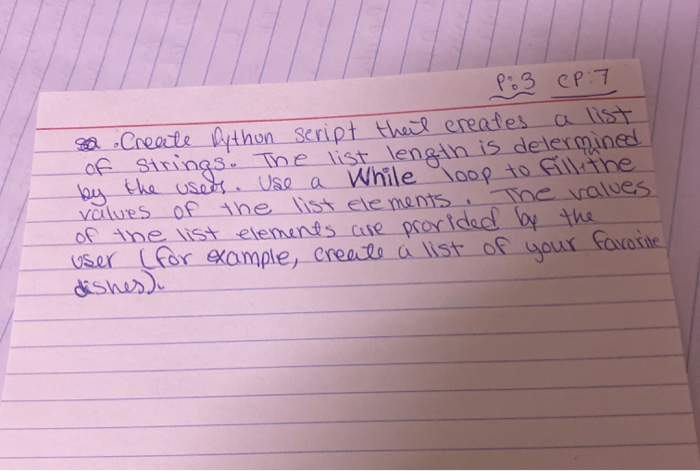 P:3 CP:7
Create Python script that creates a list
of strings. The list length is determined
by the user. Use a While loop to fill the
values of the list elements. The values
of the list elements are provided by the
user (for example, create a list of your favorite
dishes).